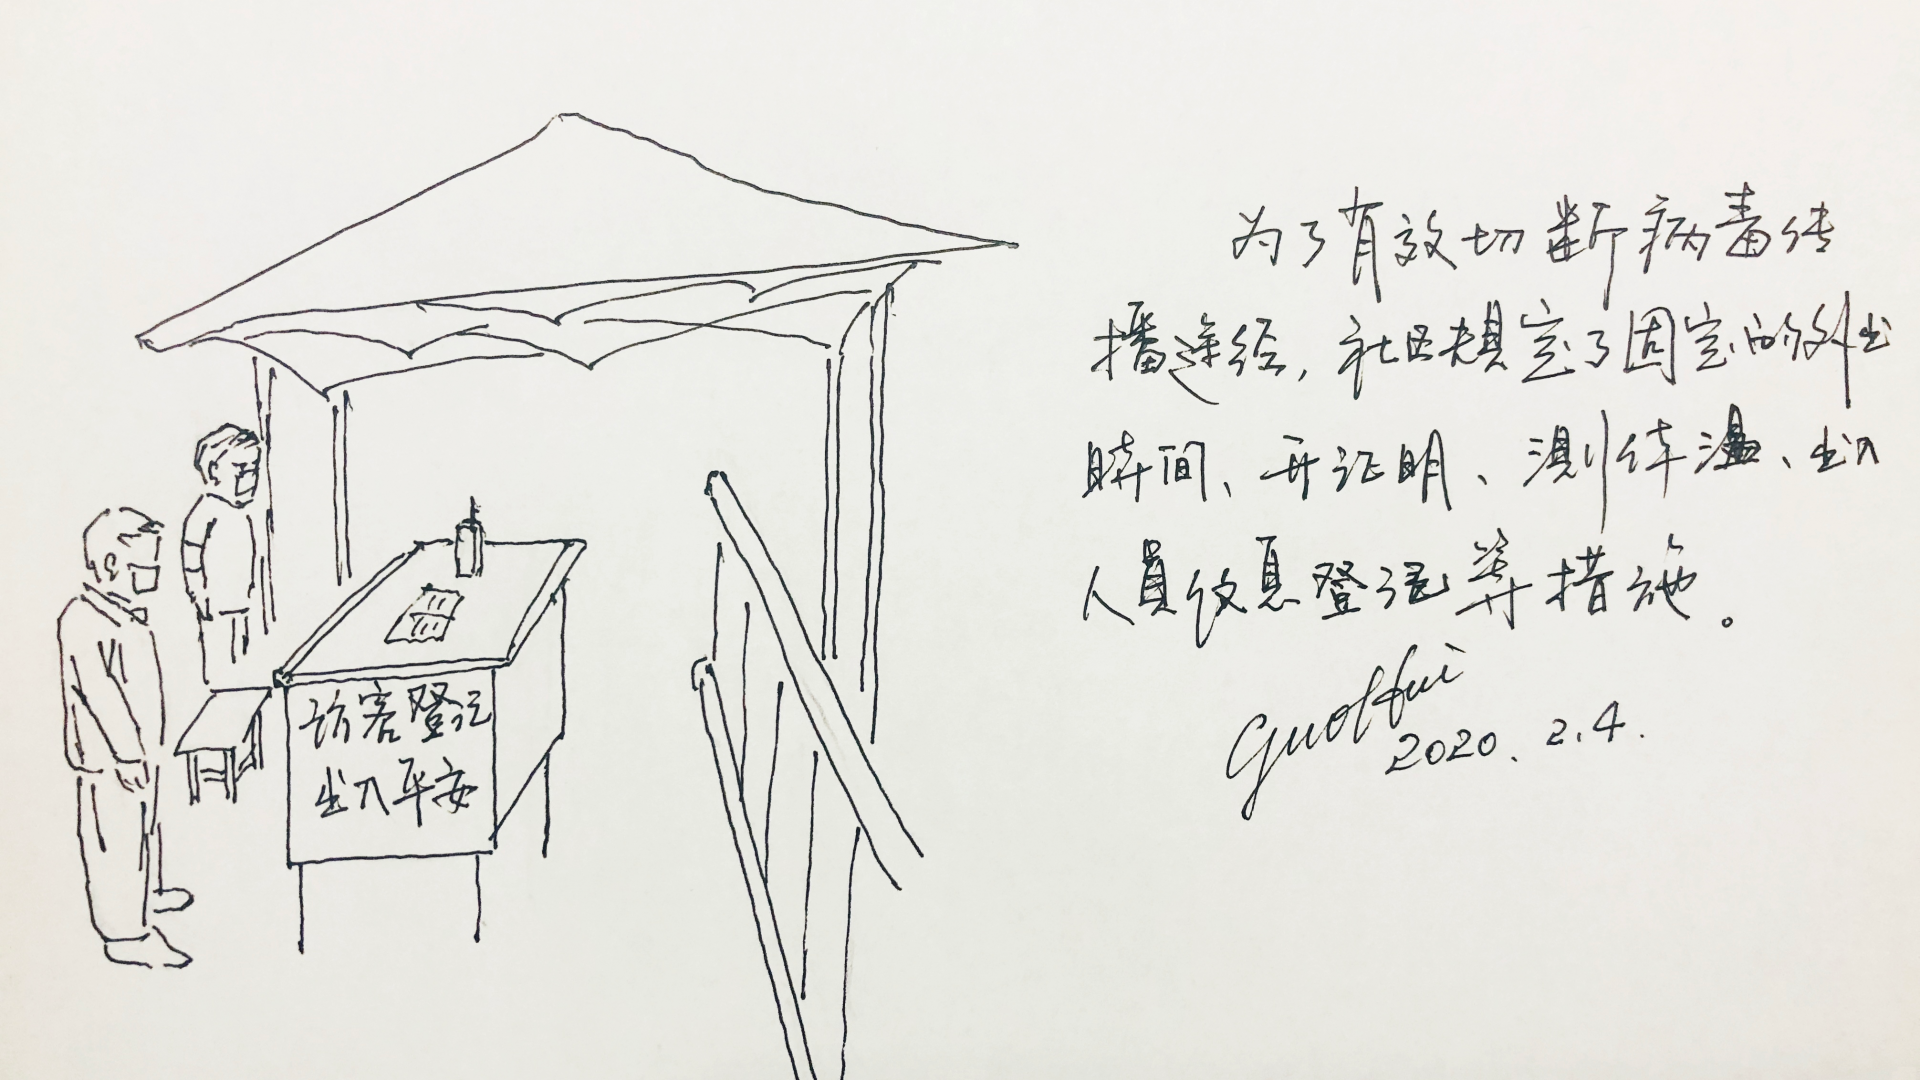 为了有效切断病毒传
播途经，社区规定了固定的外出
时间、开证明、测体温、出入
人员信息登记等措施。
GuoHui
2020.2.4.
访客登记
出入平安